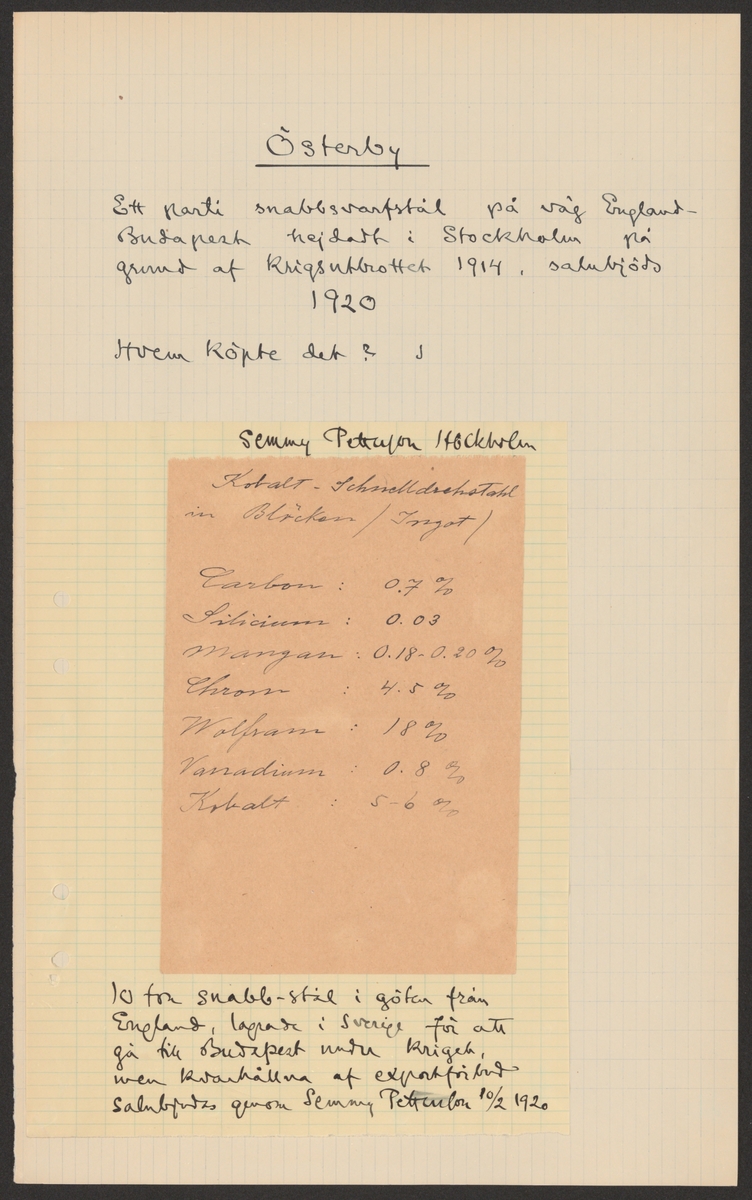 Österby
Ett parti snabbsvarfstål på väg England-
Budapest hejdadt i Stockholm på
grund af krigsutbrottet 1914, salubjöds
1920
Hvem köpte det?
Semmy Pettersson Stockholm
Kobalt-Schnelldrehstahl
in Blöcken / Ingot /
Carbon : 0.7 %
Silicium : 0.03
Mangan : 0.18-0.20 %
Chrom : 4.5 %
Wolfram : 18 %
Vanadium : 0.8 %
Kobalt : 5-6 %
10 ton snabb-stål i götar från
England, lagrade i Sverige för att
gå till Budapest under kriget,
men kvarhållna af exportförbud
salubjudes genom Semmy Pettersson 10/2 1920